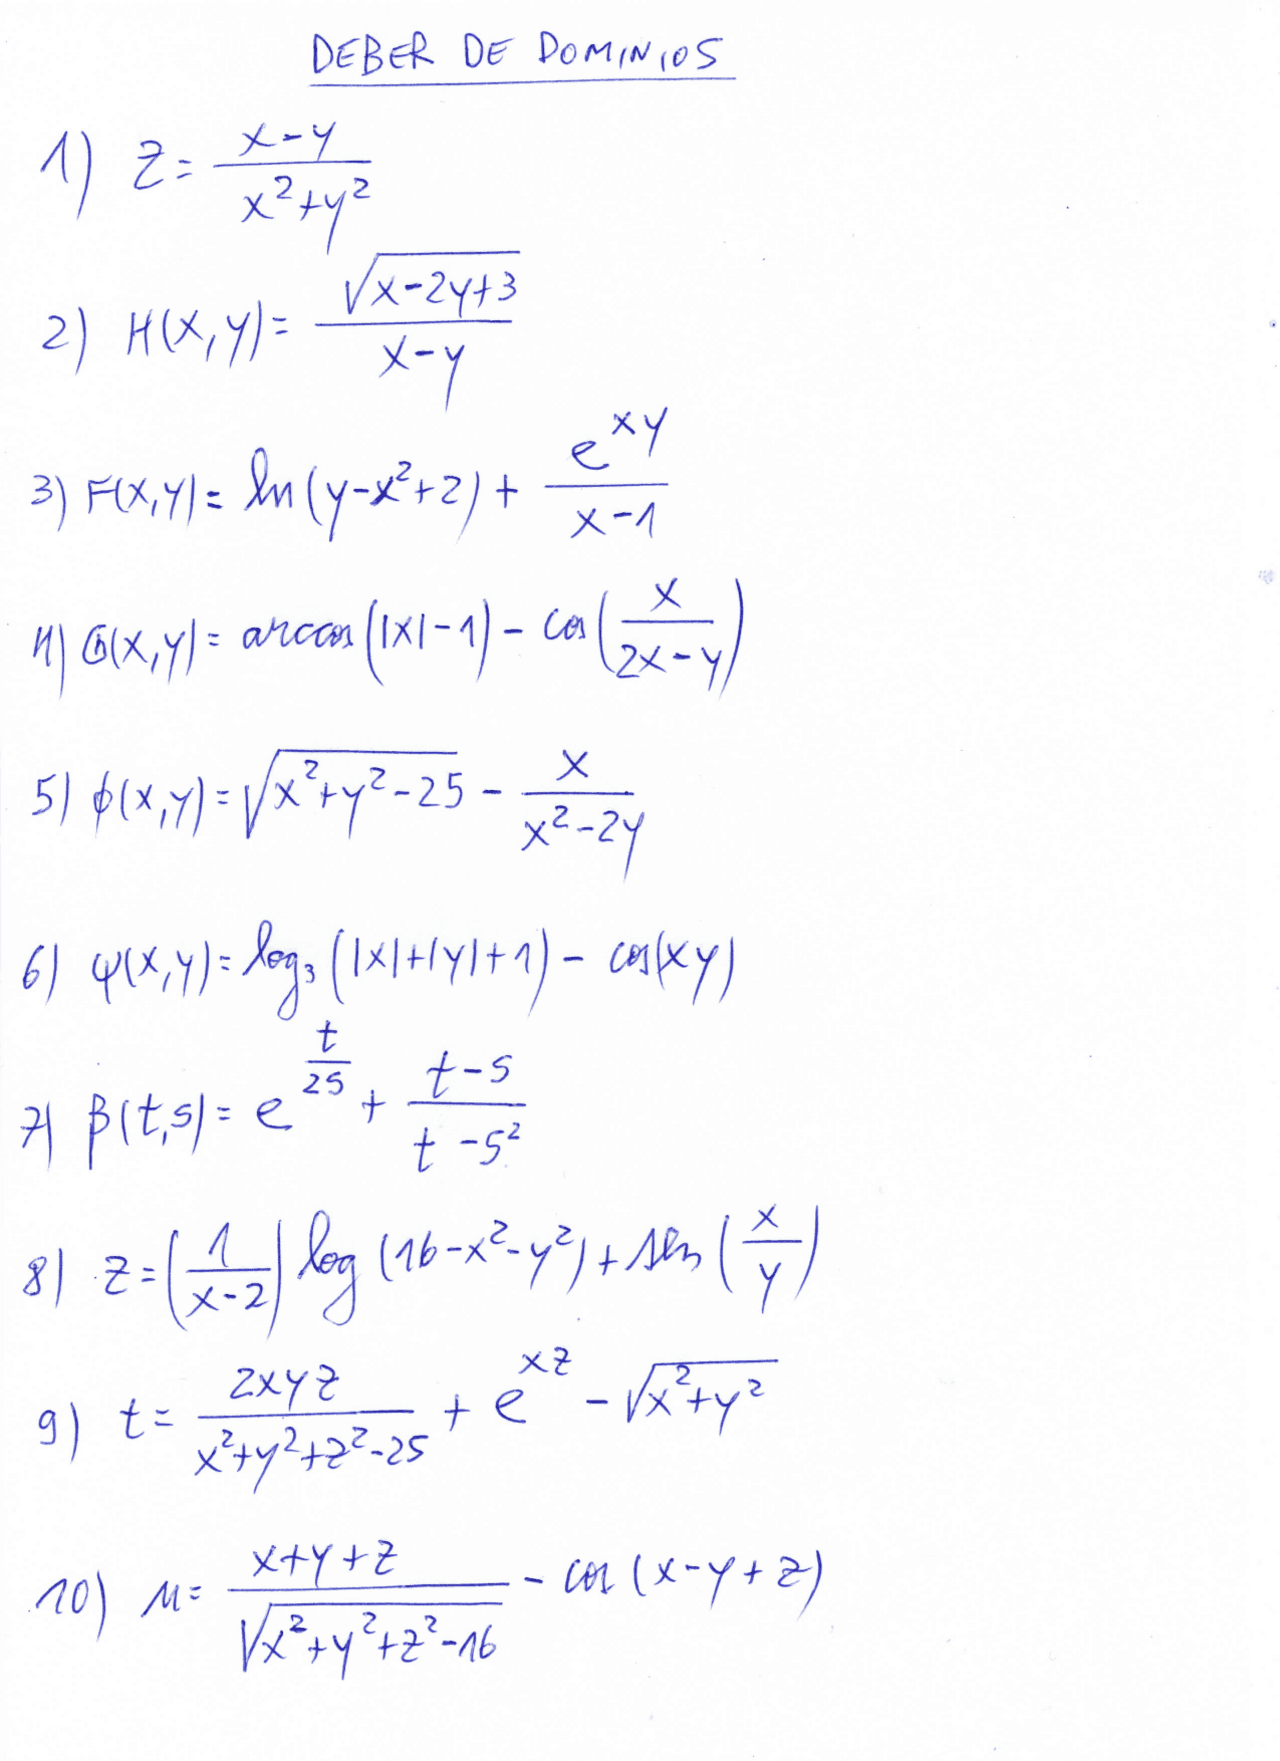 DEBER DE DOMINIOS
1) z = \frac{x-y}{x^2+y^2}
2) H(x,y) = \frac{\sqrt{x-2y+3}}{x-y}
3) F(x,y) = ln(y-x^2+2) + \frac{e^{xy}}{x-1}
4) G(x,y) = arccos(|x|-1) - cos(\frac{x}{2x-y})
5) ϕ(x,y) = \sqrt{x^2+y^2-25} - \frac{x}{x^2-2y}
6) ψ(x,y) = log_3(|x|+|y|+1) - cos(xy)
7) β(t,s) = e^{\frac{t}{2s}} + \frac{t-s}{t-s^2}
8) z = (\frac{1}{x-2}) log(16-x^2-y^2) + sen(\frac{x}{y})
9) t = \frac{2xyz}{x^2+y^2+z^2-25} + e^{xz} - \sqrt{x^2+y^2}
10) u = \frac{x+y+z}{\sqrt{x^2+y^2+z^2-16}} - cos(x-y+z)